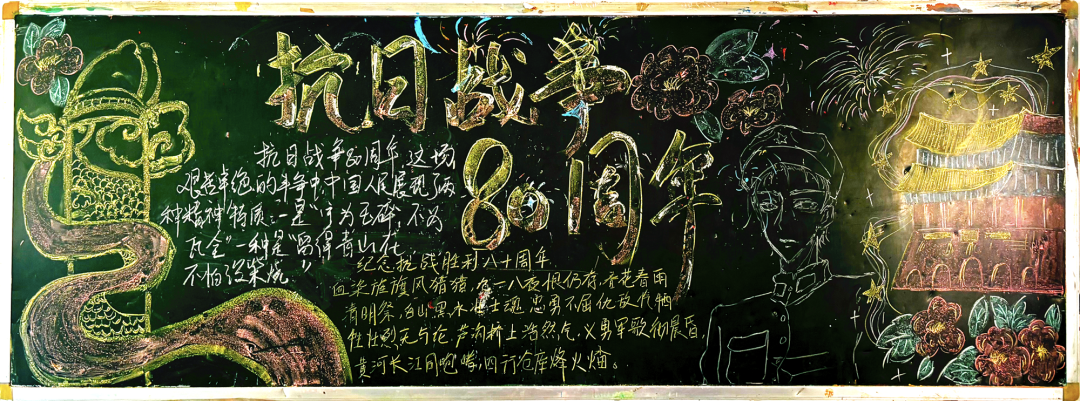 抗日战争
80周年
抗日战争80周年,这场
艰苦卓绝的斗争中中国人民展现了两
种精神特质:一是“宁为玉碎,不为
瓦全”一种是“留得青山在,
不怕没柴烧。”
纪念抗战胜利八十周年
血染旌旗风猎猎,九一八夜恨仍存,杏花春雨
清明祭,白山黑水壮士魂,忠勇不屈仇敌忾,牺
牲壮烈无与论,芦沟桥上浩然气,义勇军歌彻晨昏,
黄河长江同咆哮,四行仓库烽火熵。